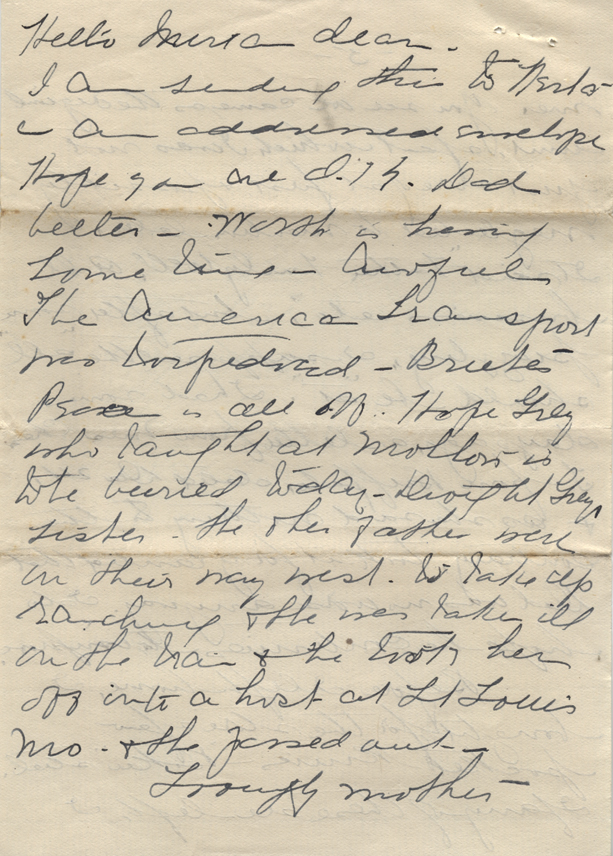 Hello Miriam dear.
I am sending this to
an addressed envelope
Hope you are O.K. Dad
better - Worth is having
some time - Awful
The America Transport
was torpedoed -
is all off. Hope Grey
who taught at is
to be buried today - Dwight Greys
sister. She & her father were
on their way west. to take up
ranching & she was take ill
on the train & he took her
off into a host at St Louis
Mo. & she passed out -
Lovingly mother